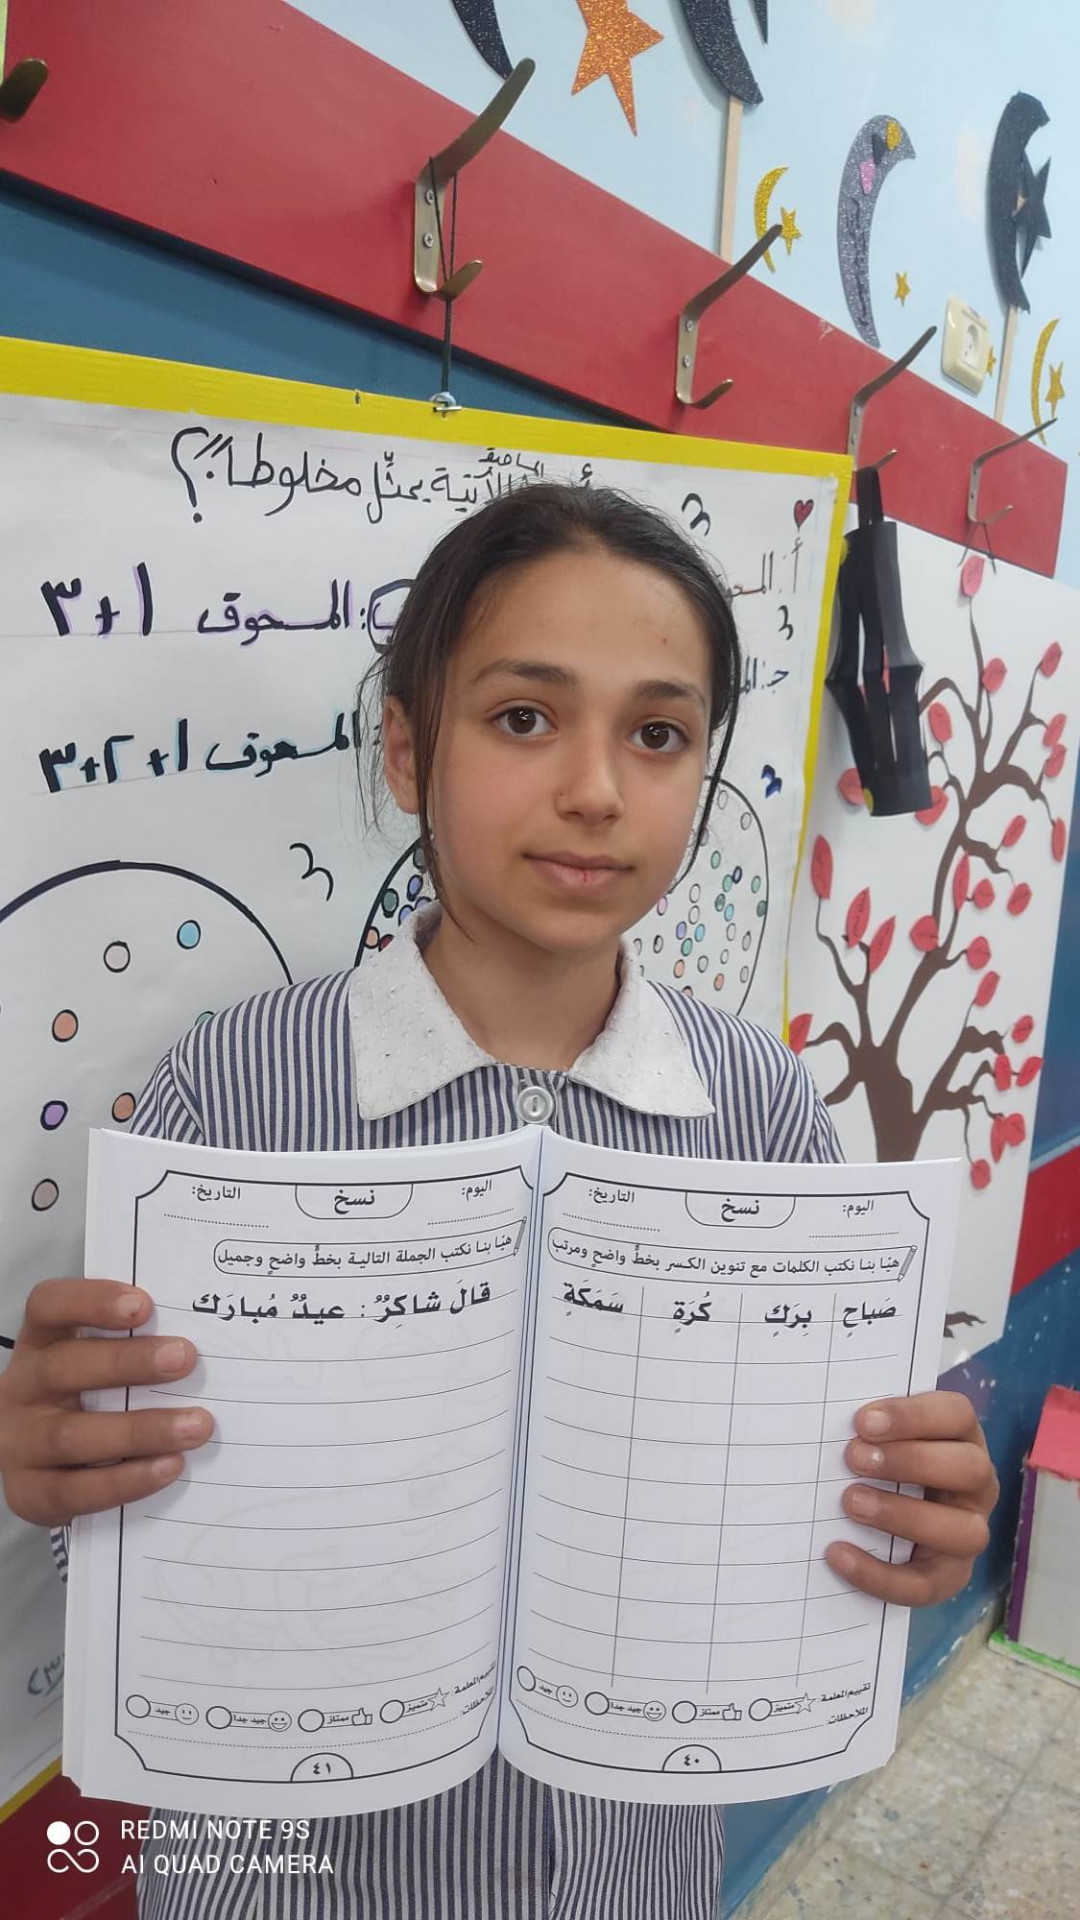 الآتية يمثّل مخلوطاً؟
المسحوق ١+٣
المسحوق ١+٢+٣
اليوم:
نسخ
التاريخ:
هيّا بنا نكتب الكلمات مع تنوين الكسر بخطٍّ واضحٍ ومرتب
صَباحٍ بِرَكٍ كُرَةٍ سَمَكَةٍ
تقييم المعلمة:
متميز
ممتاز
جيد جدا
جيد
الملاحظات:
٤٠
اليوم:
نسخ
التاريخ:
هيّا بنا نكتب الجملة التالية بخطٍّ واضحٍ وجميل
قالَ شاكِرٌ : عيدٌ مُبارَك
تقييم المعلمة:
متميز
ممتاز
جيد جدا
جيد
الملاحظات:
٤١
REDMI NOTE 9S
AI QUAD CAMERA